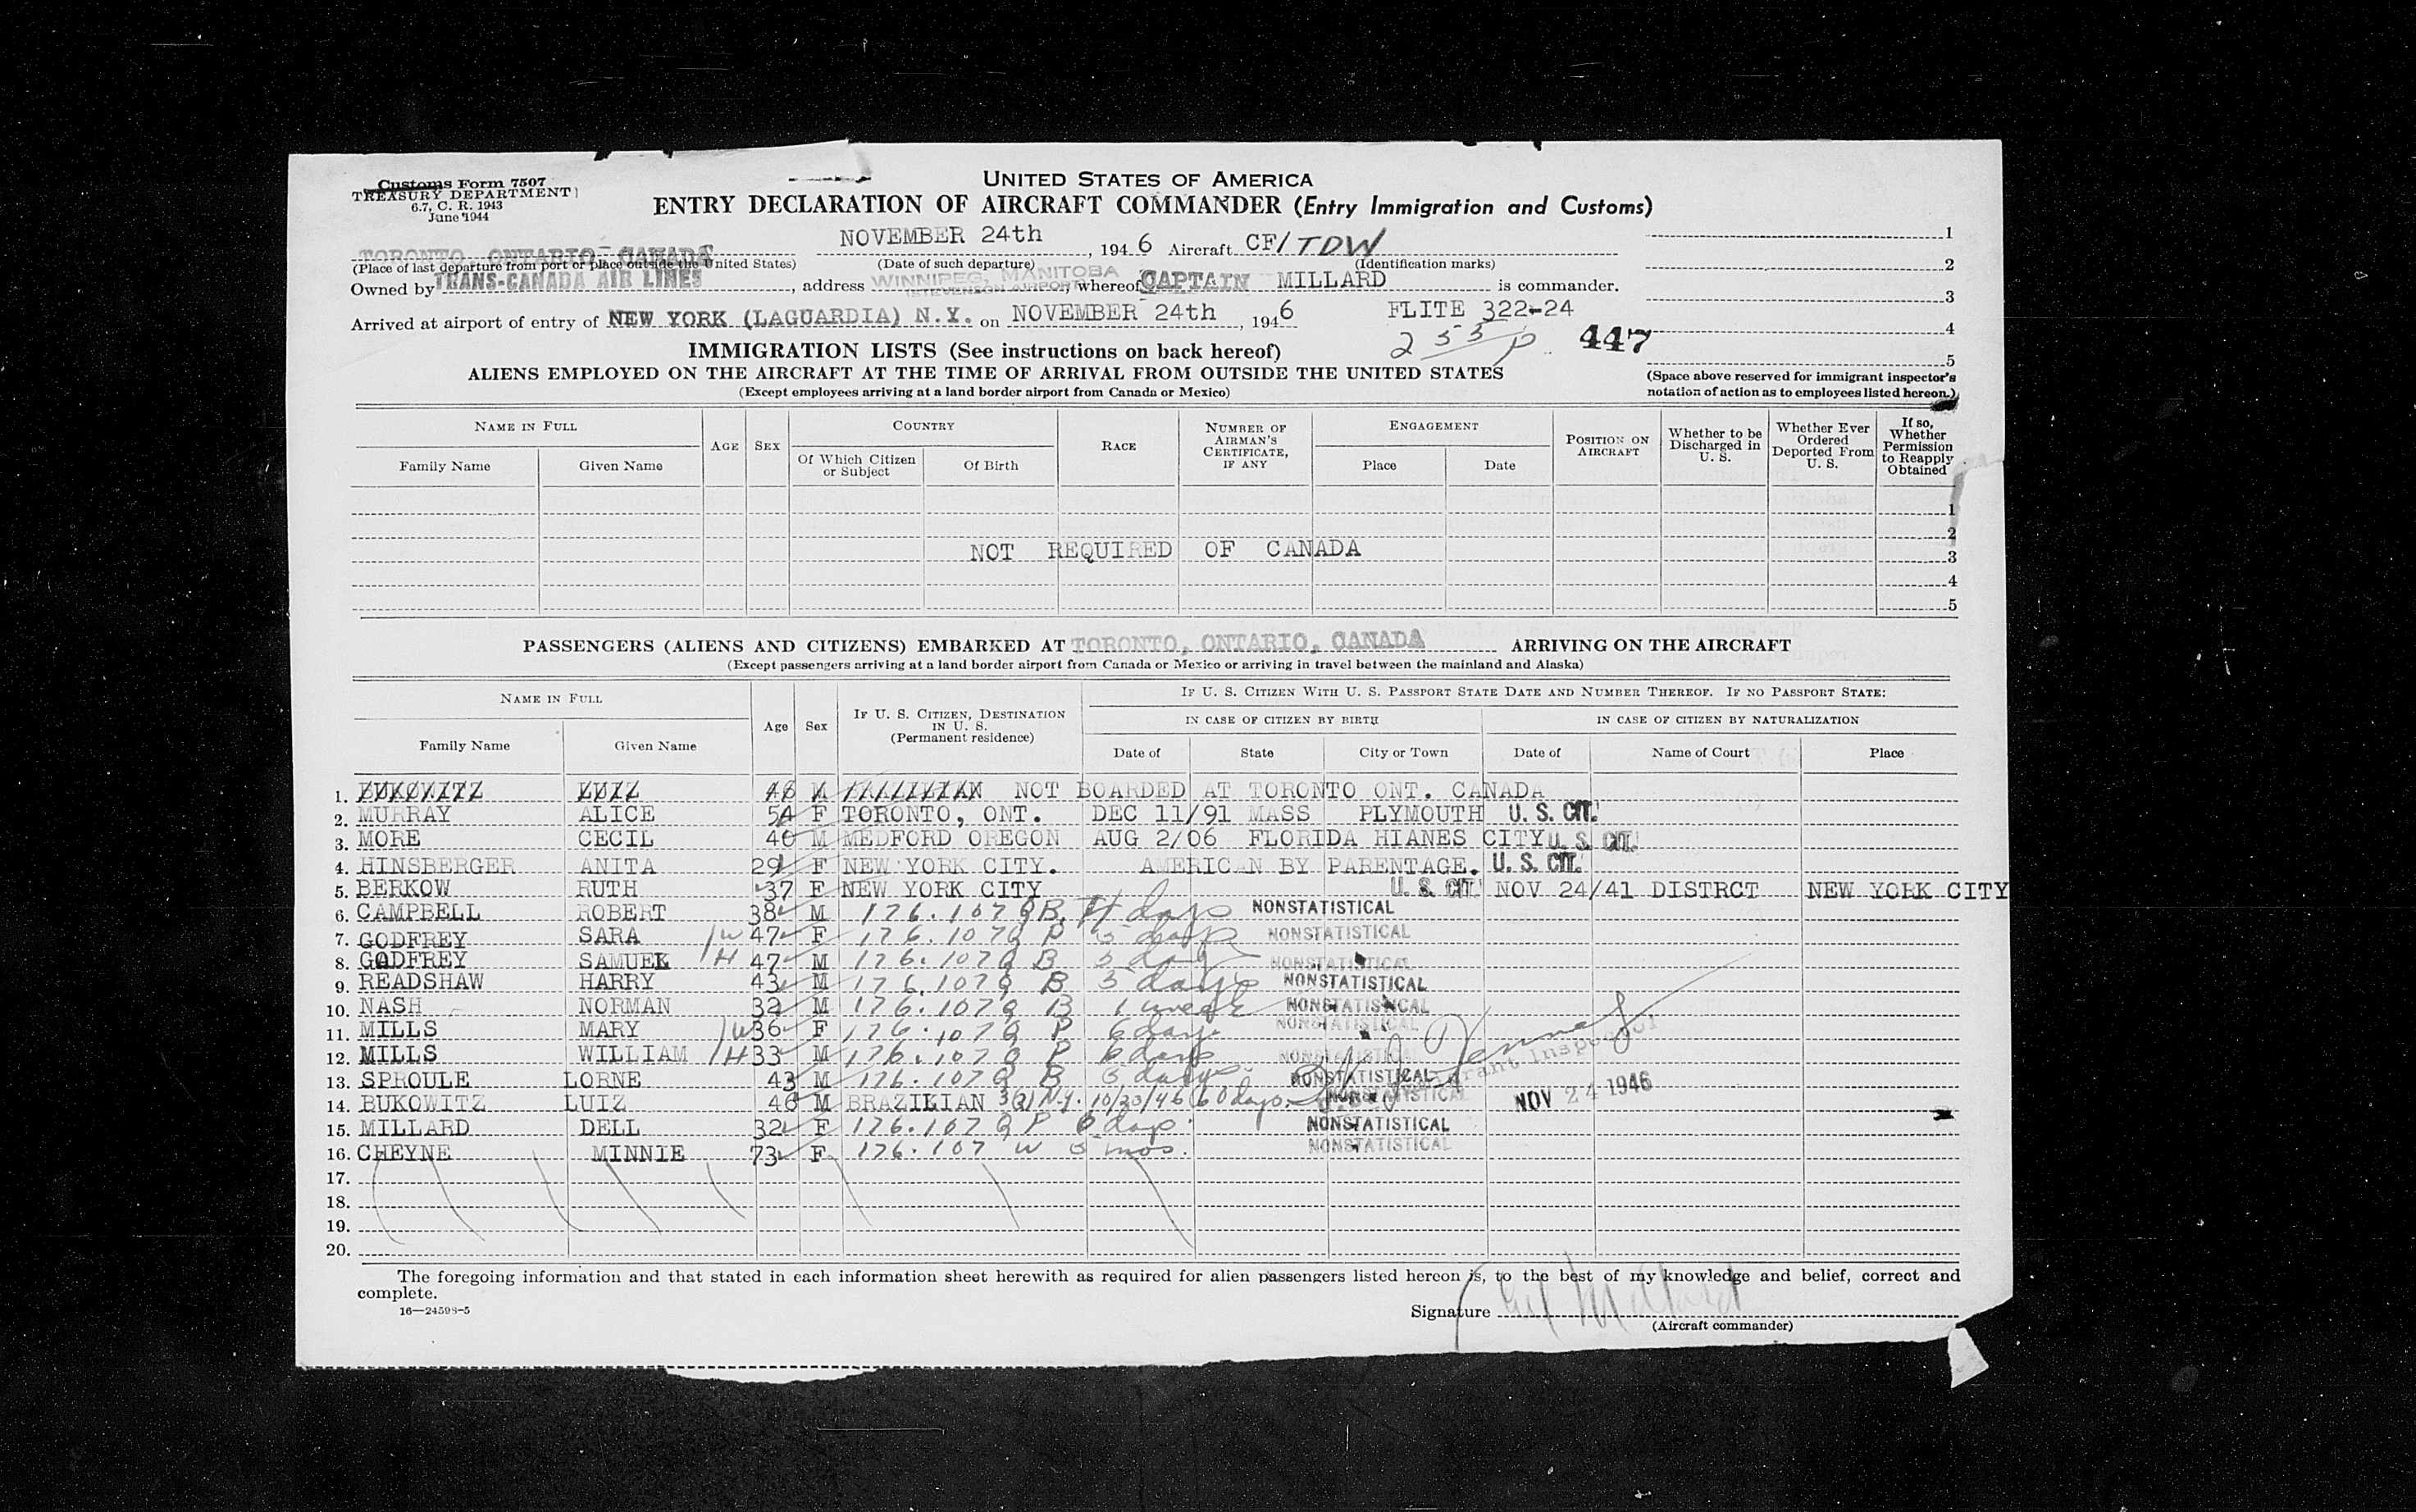 Customs Form 7507
TREASURY DEPARTMENT
6.7, C. R. 1943
June 1944
UNITED STATES OF AMERICA
ENTRY DECLARATION OF AIRCRAFT COMMANDER (Entry Immigration and Customs)
TORONTO, ONTARIO, CANADA NOVEMBER 24th, 1946 Aircraft CF/TDW
(Place of last departure from port or place outside the United States) (Date of such departure) (Identification marks)
Owned by TRANS-CANADA AIR LINES, address WINNIPEG, MANITOBA (STEVENSON AIRPORT), whereof CAPTAIN MILLARD is commander.
Arrived at airport of entry of NEW YORK (LAGUARDIA) N.Y. on NOVEMBER 24th, 1946 FLITE 322-24
2 55 p 447
1
2
3
4
5
(Space above reserved for immigrant inspector's notation of action as to employees listed hereon.)
IMMIGRATION LISTS (See instructions on back hereof)
ALIENS EMPLOYED ON THE AIRCRAFT AT THE TIME OF ARRIVAL FROM OUTSIDE THE UNITED STATES
(Except employees arriving at a land border airport from Canada or Mexico)
NAME IN FULL AGE SEX COUNTRY RACE NUMBER OF AIRMAN'S CERTIFICATE, IF ANY ENGAGEMENT POSITION ON AIRCRAFT Whether to be Discharged in U. S. Whether Ever Ordered Deported From U. S. If so, Whether Permission to Reapply Obtained
Family Name Given Name Of Which Citizen or Subject Of Birth Place Date
1
2
NOT REQUIRED OF CANADA
3
4
5
PASSENGERS (ALIENS AND CITIZENS) EMBARKED AT TORONTO, ONTARIO, CANADA ARRIVING ON THE AIRCRAFT
(Except passengers arriving at a land border airport from Canada or Mexico or arriving in travel between the mainland and Alaska)
NAME IN FULL Age Sex IF U. S. CITIZEN, DESTINATION IN U. S. (Permanent residence) IF U. S. CITIZEN WITH U. S. PASSPORT STATE DATE AND NUMBER THEREOF. IF NO PASSPORT STATE:
IN CASE OF CITIZEN BY BIRTH IN CASE OF CITIZEN BY NATURALIZATION
Family Name Given Name Date of State City or Town Date of Name of Court Place
1. BUKOWITZ LUIZ 46 M BRAZILIAN NOT BOARDED AT TORONTO ONT. CANADA
2. MURRAY ALICE 54 F TORONTO, ONT. DEC 11/91 MASS PLYMOUTH U. S. CIT.
3. MORE CECIL 40 M MEDFORD OREGON AUG 2/06 FLORIDA HIANES CITY U. S. CIT.
4. HINSBERGER ANITA 29 F NEW YORK CITY. AMERICAN BY PARENTAGE. U. S. CIT.
5. BERKOW RUTH 37 F NEW YORK CITY U. S. CIT. NOV 24/41 DISTRCT NEW YORK CITY
6. CAMPBELL ROBERT 38 M 176.107 Q B days NONSTATISTICAL
7. GODFREY SARA W 47 F 176.107 Q P 5 days NONSTATISTICAL
8. GODFREY SAMUEL H 47 M 176.107 Q B 5 days NONSTATISTICAL
9. READSHAW HARRY 43 M 176.107 Q B 3 days NONSTATISTICAL
10. NASH NORMAN 32 M 176.107 Q B 1 week NONSTATISTICAL
11. MILLS MARY W 36 F 176.107 Q P 6 days NONSTATISTICAL
12. MILLS WILLIAM H 33 M 176.107 Q P 6 days NONSTATISTICAL
13. SPROULE LORNE 43 M 176.107 Q B 5 days NONSTATISTICAL
Immigrant Inspector
14. BUKOWITZ LUIZ 46 M BRAZILIAN 3(2) N.Y. 10/23/46 60 days. NONSTATISTICAL NOV 24 1946
15. MILLARD DELL 32 F 176.107 Q P days NONSTATISTICAL
16. CHEYNE MINNIE 73 F 176.107 W 5 mos. NONSTATISTICAL
17.
18.
19.
20.
The foregoing information and that stated in each information sheet herewith as required for alien passengers listed hereon is, to the best of my knowledge and belief, correct and
complete.
16—24598-5
Signature Millard
(Aircraft commander)